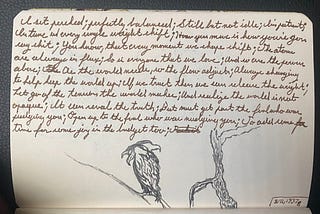 I sit perched, perfectly balanced; Still but not idle; I'm patient;
In tune w/ every single weight shift; How you move is how you're gon
say shit; You know, that every moment we shape shift; The atoms
are always in flux; So is everyone that we love; And so are the
above; As the world needs, so the flow adjusts; Always changing
to help keep the world up; If we trust then we can release the weight;
Let go of the tension the world makes; And realize the world is not
opaque; It can reveal the truth; But must get past the fool who was
judging you; Open up to the fool who was nudging you; To add some
time for some joy in the budget too;